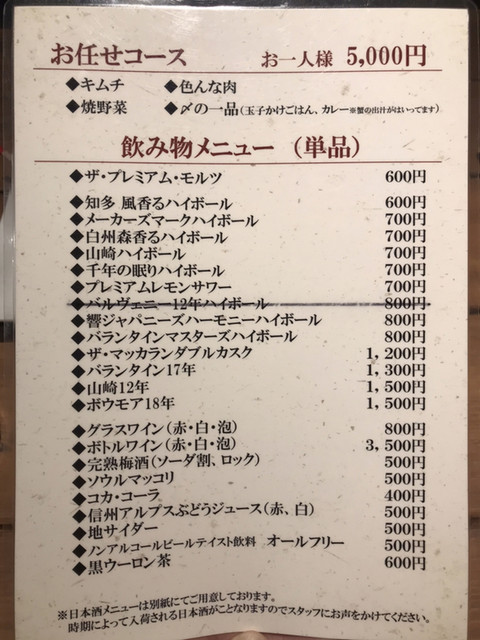 お任せコース お一人様 5,000円
◆キムチ ◆色んな肉
◆焼野菜 ◆〆の一品(玉子かけごはん、カレー※蟹の出汁がはいってます)
飲み物メニュー (単品)
◆ザ・プレミアム・モルツ 600円
◆知多 風香るハイボール 600円
◆メーカーズマークハイボール 700円
◆白州森香るハイボール 700円
◆山崎ハイボール 700円
◆千年の眠りハイボール 700円
◆プレミアムレモンサワー 700円
◆バルヴェニー12年ハイボール 800円
◆響ジャパニーズハーモニーハイボール 800円
◆バランタインマスターズハイボール 800円
◆ザ・マッカランダブルカスク 1,200円
◆バランタイン17年 1,300円
◆山崎12年 1,500円
◆ボウモア18年 1,500円
◆グラスワイン(赤・白・泡) 800円
◆ボトルワイン(赤・白・泡) 3,500円
◆完熟梅酒(ソーダ割、ロック) 500円
◆ソウルマッコリ 500円
◆コカ・コーラ 400円
◆信州アルプスぶどうジュース(赤、白) 500円
◆地サイダー 500円
◆ノンアルコールビールテイスト飲料 オールフリー 500円
◆黒ウーロン茶 600円
※日本酒メニューは別紙にてご用意しております。
時期によって入荷される日本酒がことなりますのでスタッフにお声をかけてください。